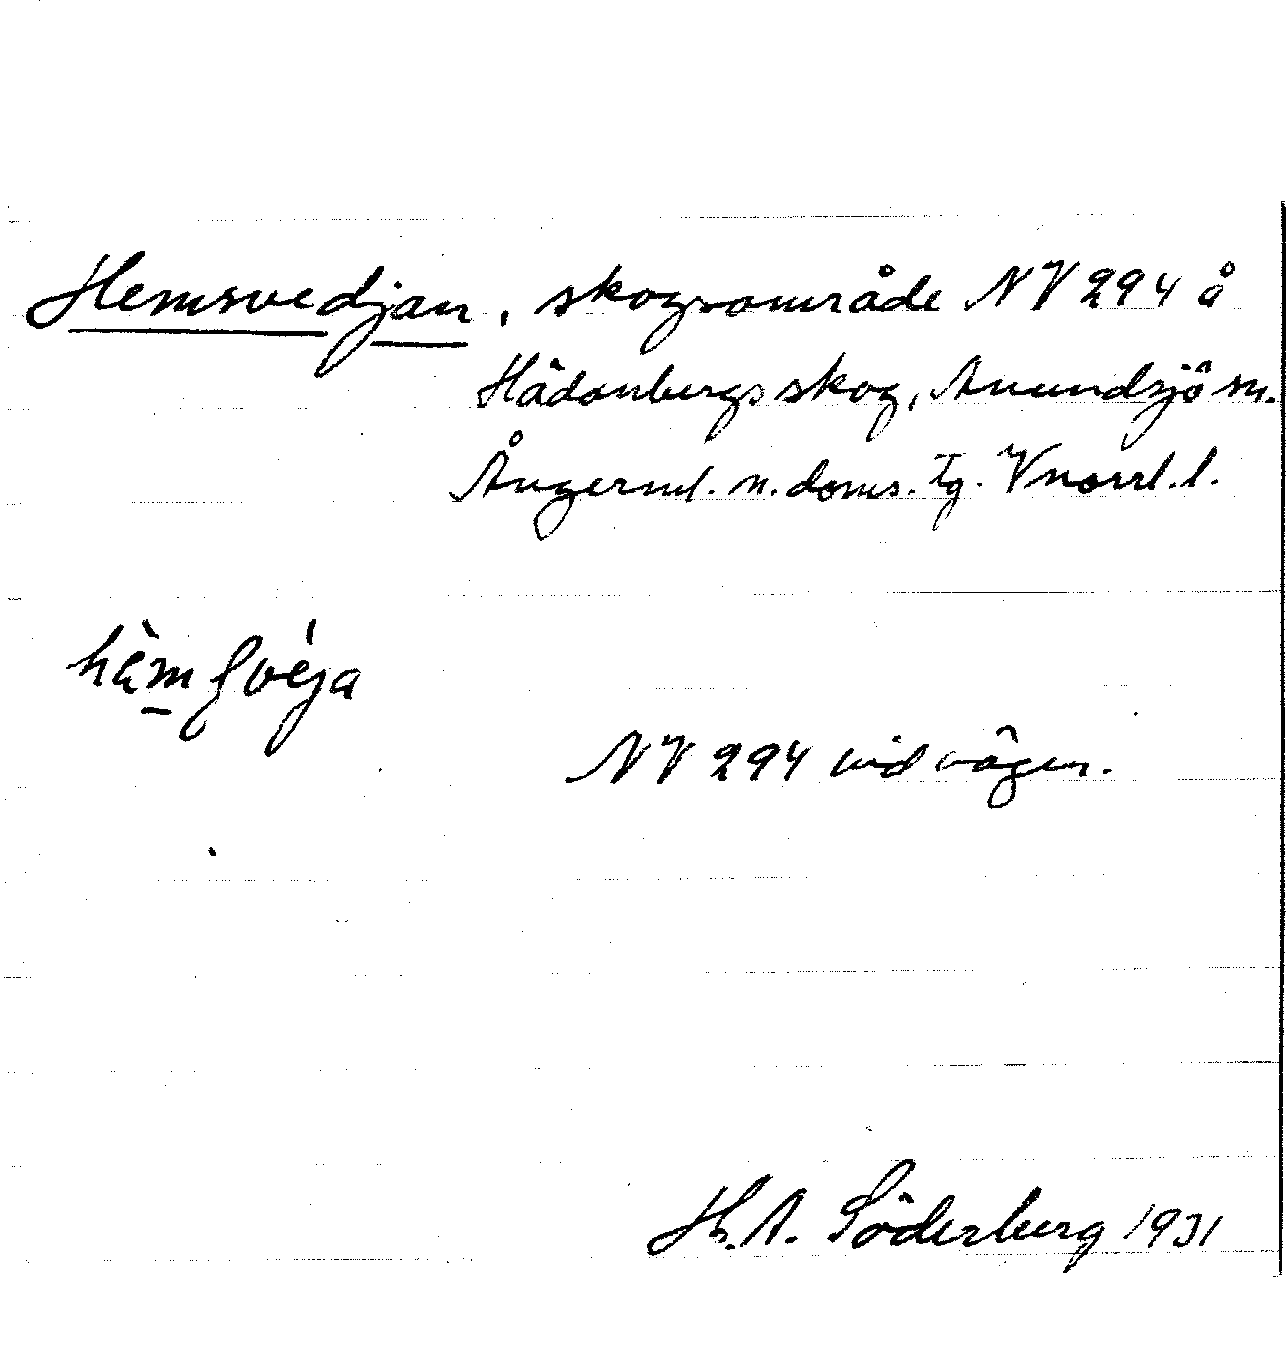 Hemsvedjan, skogsområde NV 294 å
Hädanbergs skog, Anundsjö sn.
Ångerml. n. doms. tg. Vnorrl. l.
NV 294 vid vägen.
Th. A. Söderberg 1931